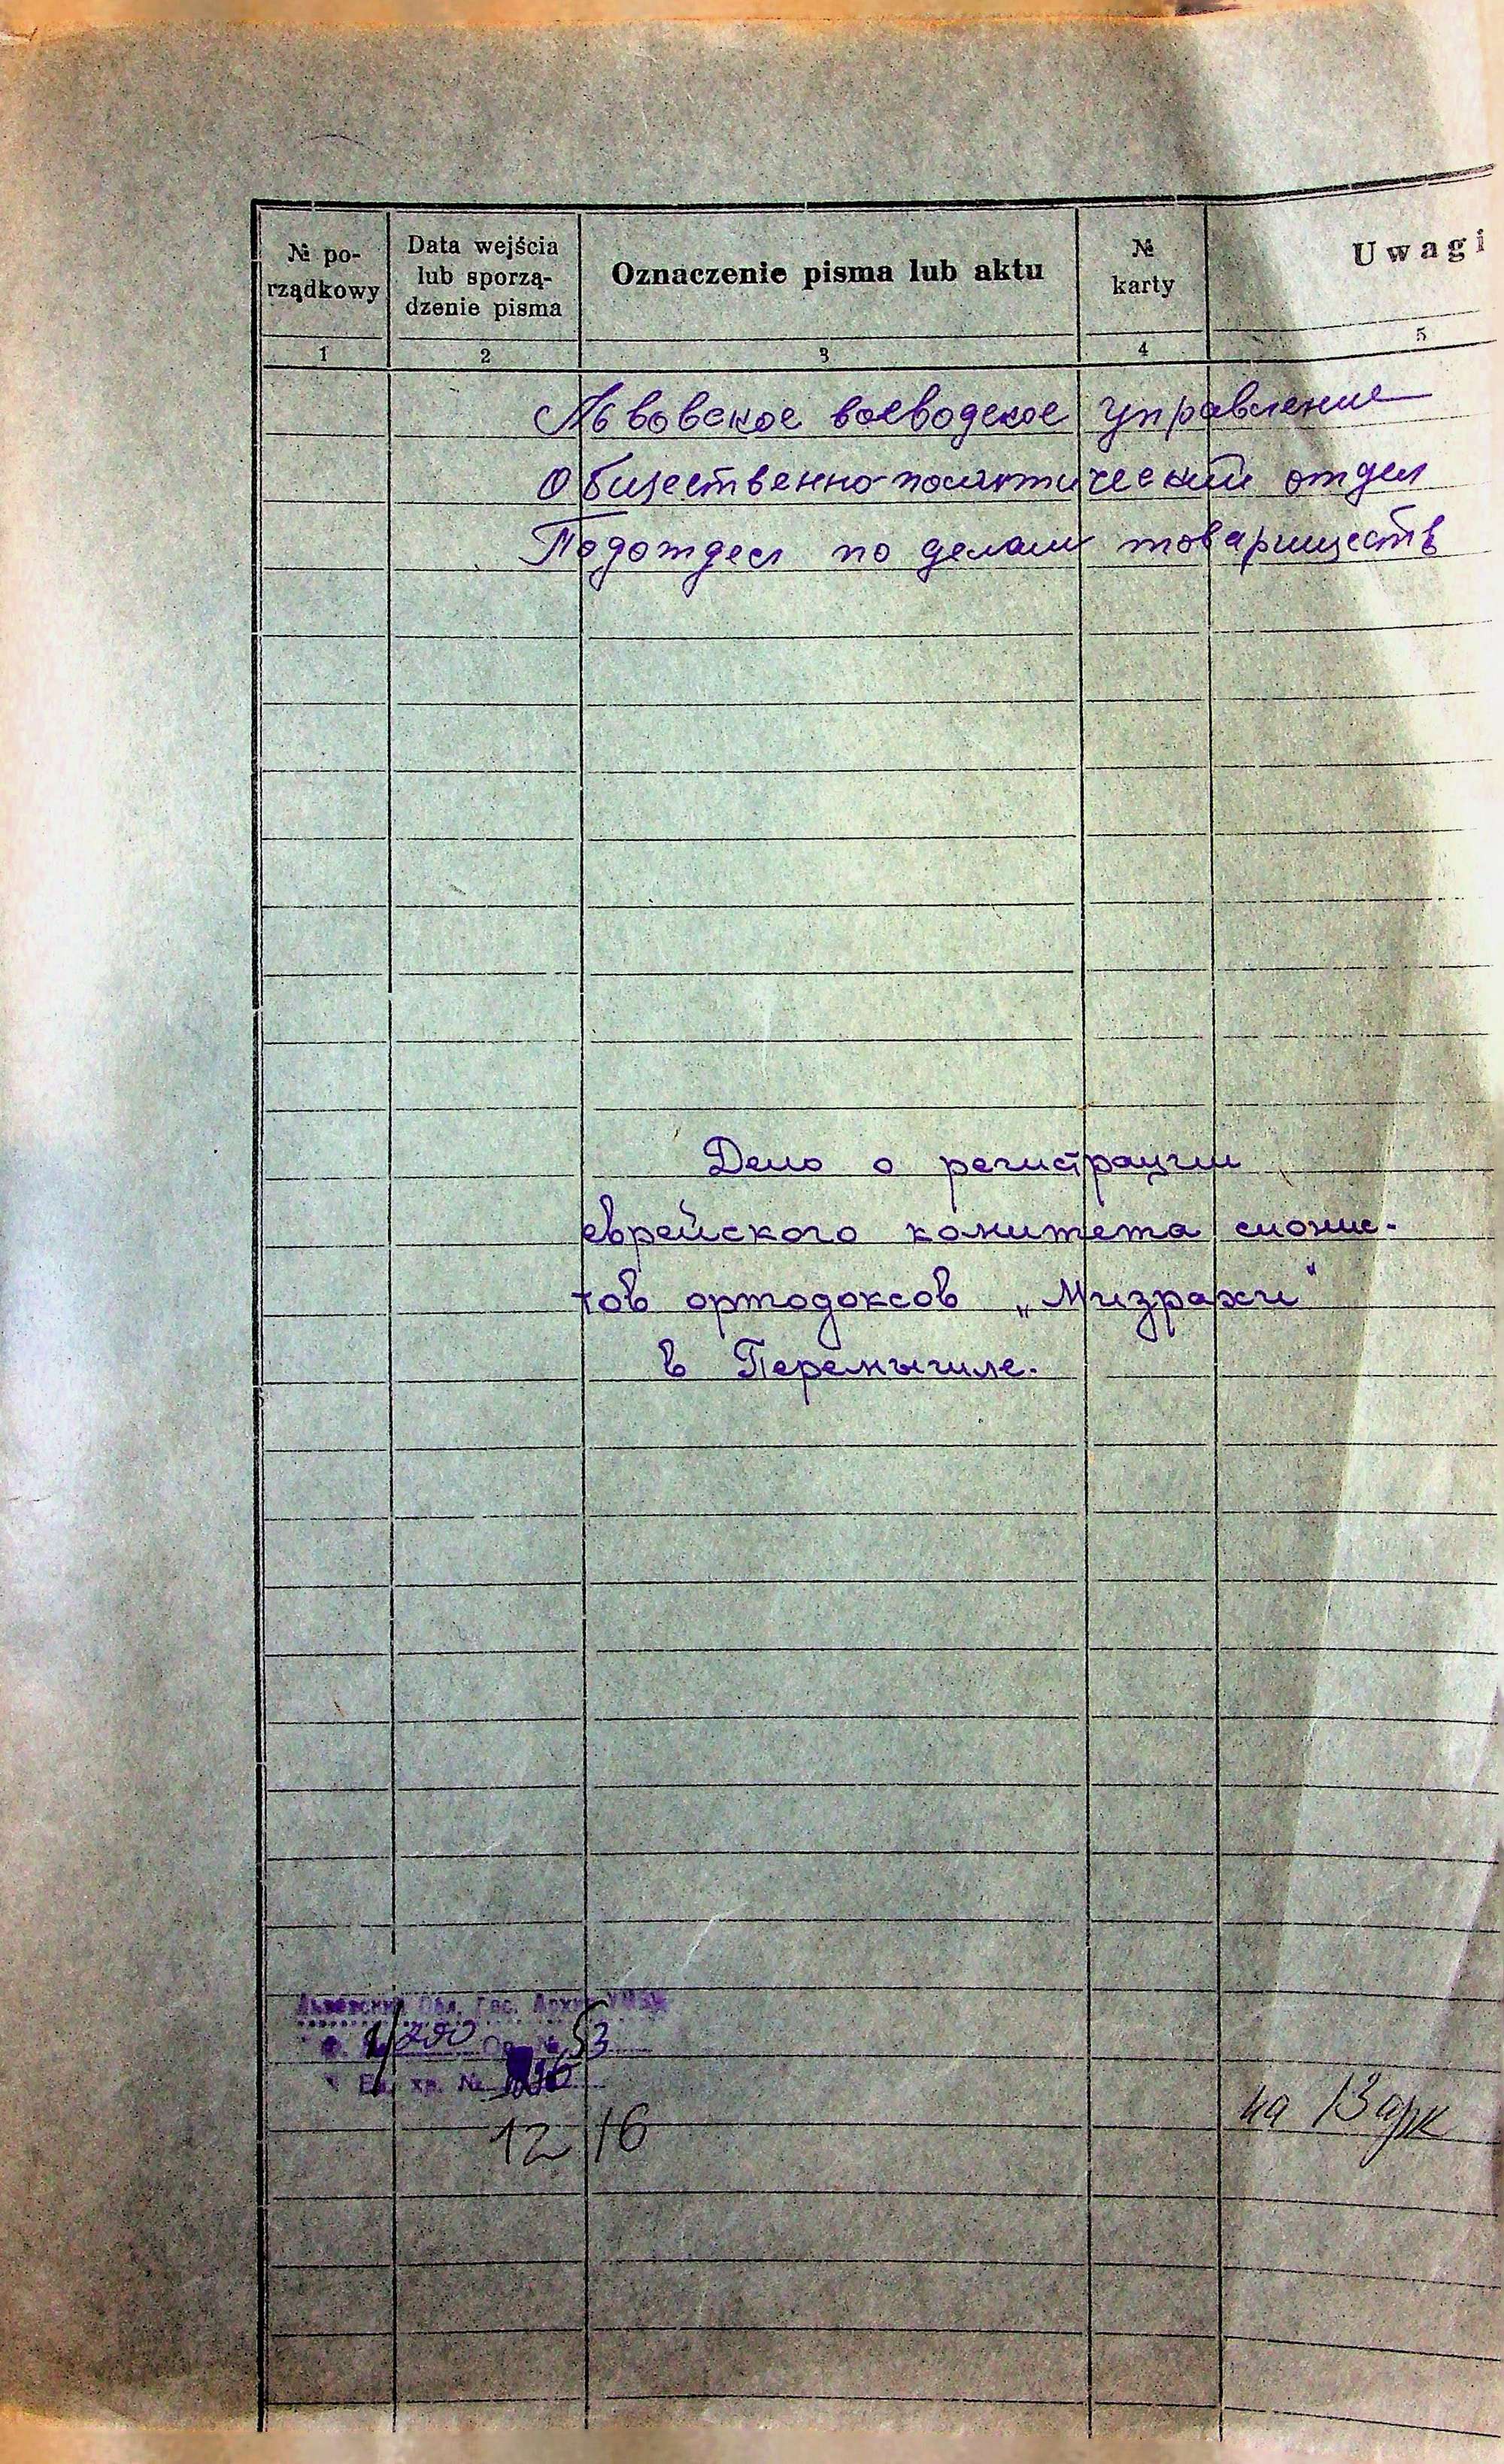 № po-
rządkowy
Data wejścia
lub sporzą-
dzenie pisma
Oznaczenie pisma lub aktu
№
karty
Uwagi
1 2 3 4 5
Львовское воеводское управление
Общественно-политический отдел
Подотдел по делам товариществ
Дело о регистрации
еврейского комитета сионис-
тов ортодоксов „Мизрахи“
в Перемышле.
Львовский Обл. Гос. Архив
1/250 Оп. № 53
Ед. хр. №
12 16
на 13 арк